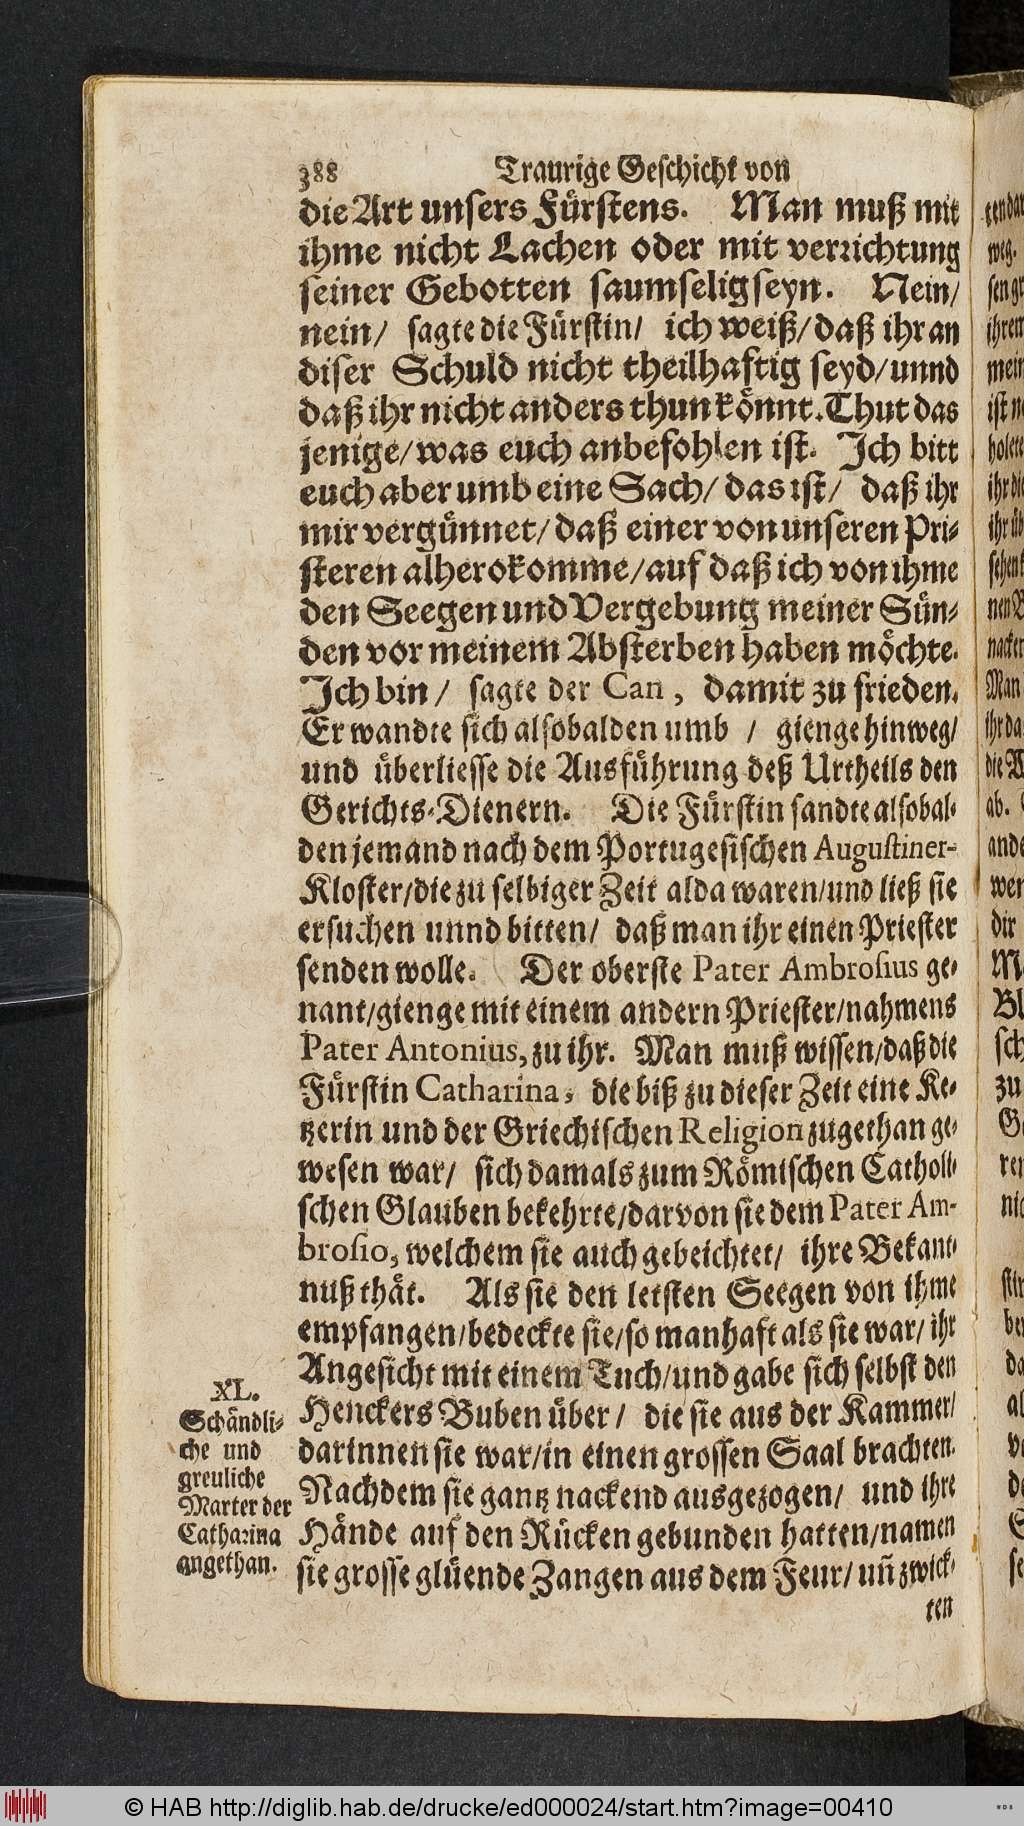 388 Traurige Geschicht von
die Art unsers Fürstens. Man muß mit
ihme nicht Lachen oder mit verrichtung
seiner Gebotten saumselig seyn. Nein/
nein/ sagte die Fürstin/ ich weiß/ daß ihr an
diser Schuld nicht theilhaftig seyd/ unnd
daß ihr nicht anders thun könnt. Thut das
jenige/ was euch anbefohlen ist. Ich bitt
euch aber umb eine Sach/ das ist/ daß ihr
mir vergünnet/ daß einer von unseren Pri-
steren alhero komme/ auf daß ich von ihme
den Seegen und Vergebung meiner Sün-
den vor meinem Absterben haben möchte.
Ich bin/ sagte der Can, damit zu frieden.
Er wandte sich alsobalden umb / gienge hinweg/
und überliesse die Ausführung deß Urtheils den
Gerichts-Dienern. Die Fürstin sandte alsobal-
den jemand nach dem Portugesischen Augustiner-
Kloster/ die zu selbiger Zeit alda waren/ und ließ sie
ersuchen unnd bitten/ daß man ihr einen Priester
senden wolle. Der oberste Pater Ambrosius ge-
nant/ gienge mit einem andern Priester/ nahmens
Pater Antonius, zu ihr. Man muß wissen/ daß die
Fürstin Catharina, die biß zu dieser Zeit eine Ke-
tzerin und der Griechischen Religion zugethan ge-
wesen war/ sich damals zum Römischen Catholi-
schen Glauben bekehrte/ darvon sie dem Pater Am-
brosio, welchem sie auch gebeichtet/ ihre Bekant-
nuß thät. Als sie den letsten Seegen von ihme
empfangen/ bedeckte sie/ so manhaft als sie war/ ihr
Angesicht mit einem Tuch/ und gabe sich selbst den
Henckers Buben über/ die sie aus der Kammer/
darinnen sie war/ in einen grossen Saal brachten.
Nachdem sie gantz nackend ausgezogen/ und ihre
Hände auf den Rücken gebunden hatten/ namen
sie grosse glüende Zangen aus dem Feur/ uñ zwick-
ten
XL.
Schändli-
che und
greuliche
Marter der
Catharina
angethan.
© HAB http://diglib.hab.de/drucke/ed000024/start.htm?image=00410